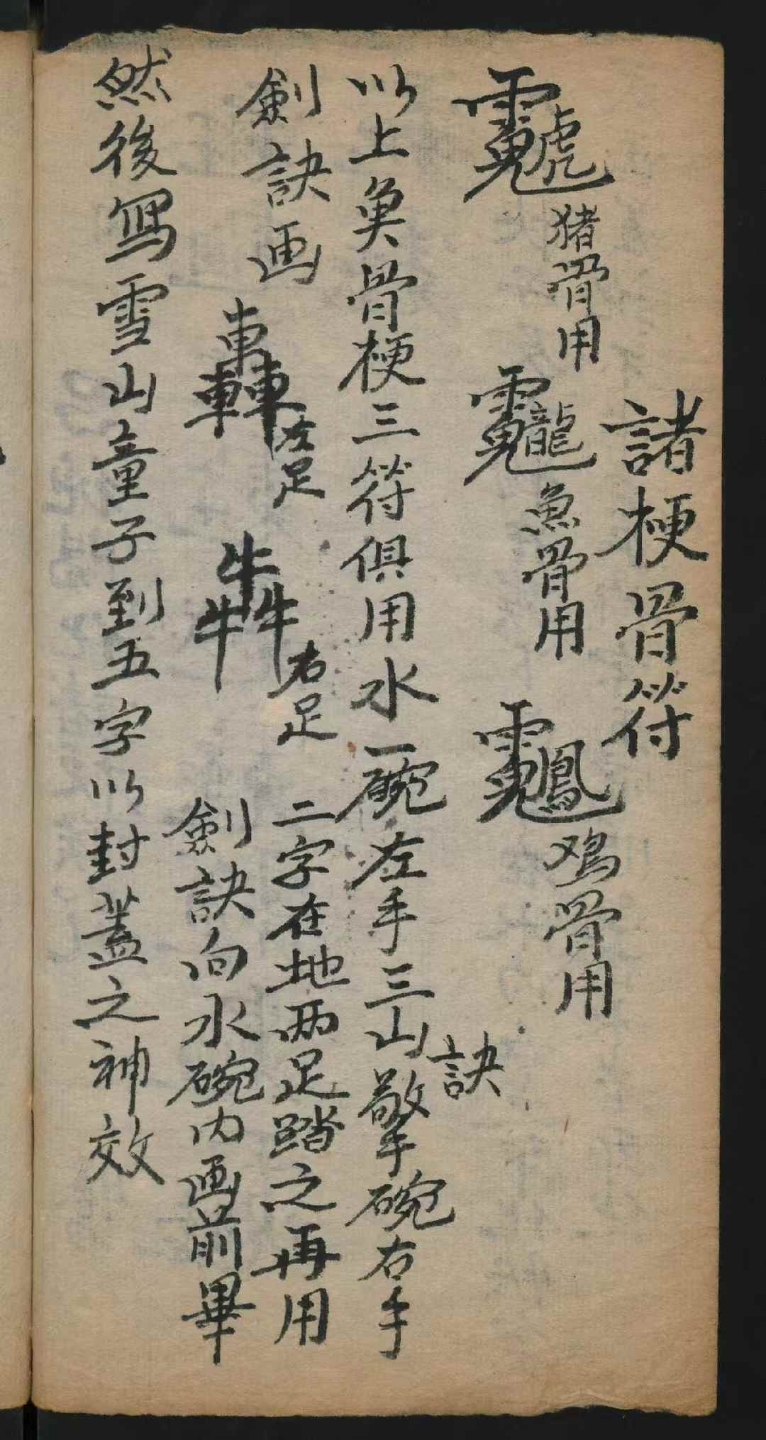 諸梗骨符
虎 猪骨用
龍 魚骨用
鳳 鸡骨用
以上魚骨梗三符俱用水一碗左手三山訣擎碗右手
劍訣画
轟 左足
犇 右足
二字在地両足踏之再用
劍訣向水碗内画前畢
然後寫雪山童子到五字以封蓋之神效